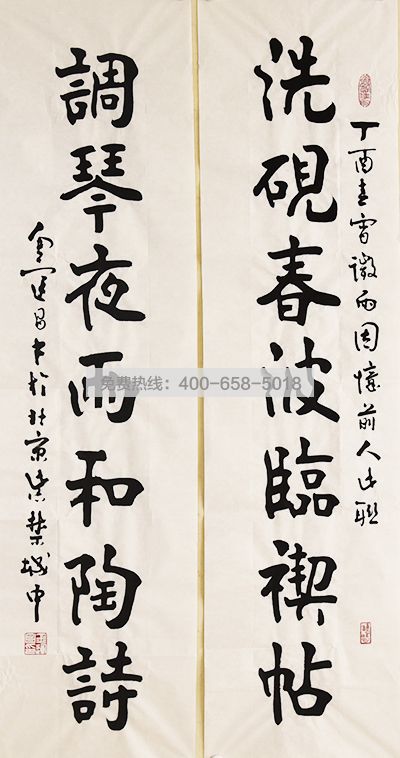 丁酉春雪微雨因憶前人此聯
洗硯春波臨禊帖
調琴夜雨和陶詩
書於北京紫禁城中
免费热线：400-658-5018